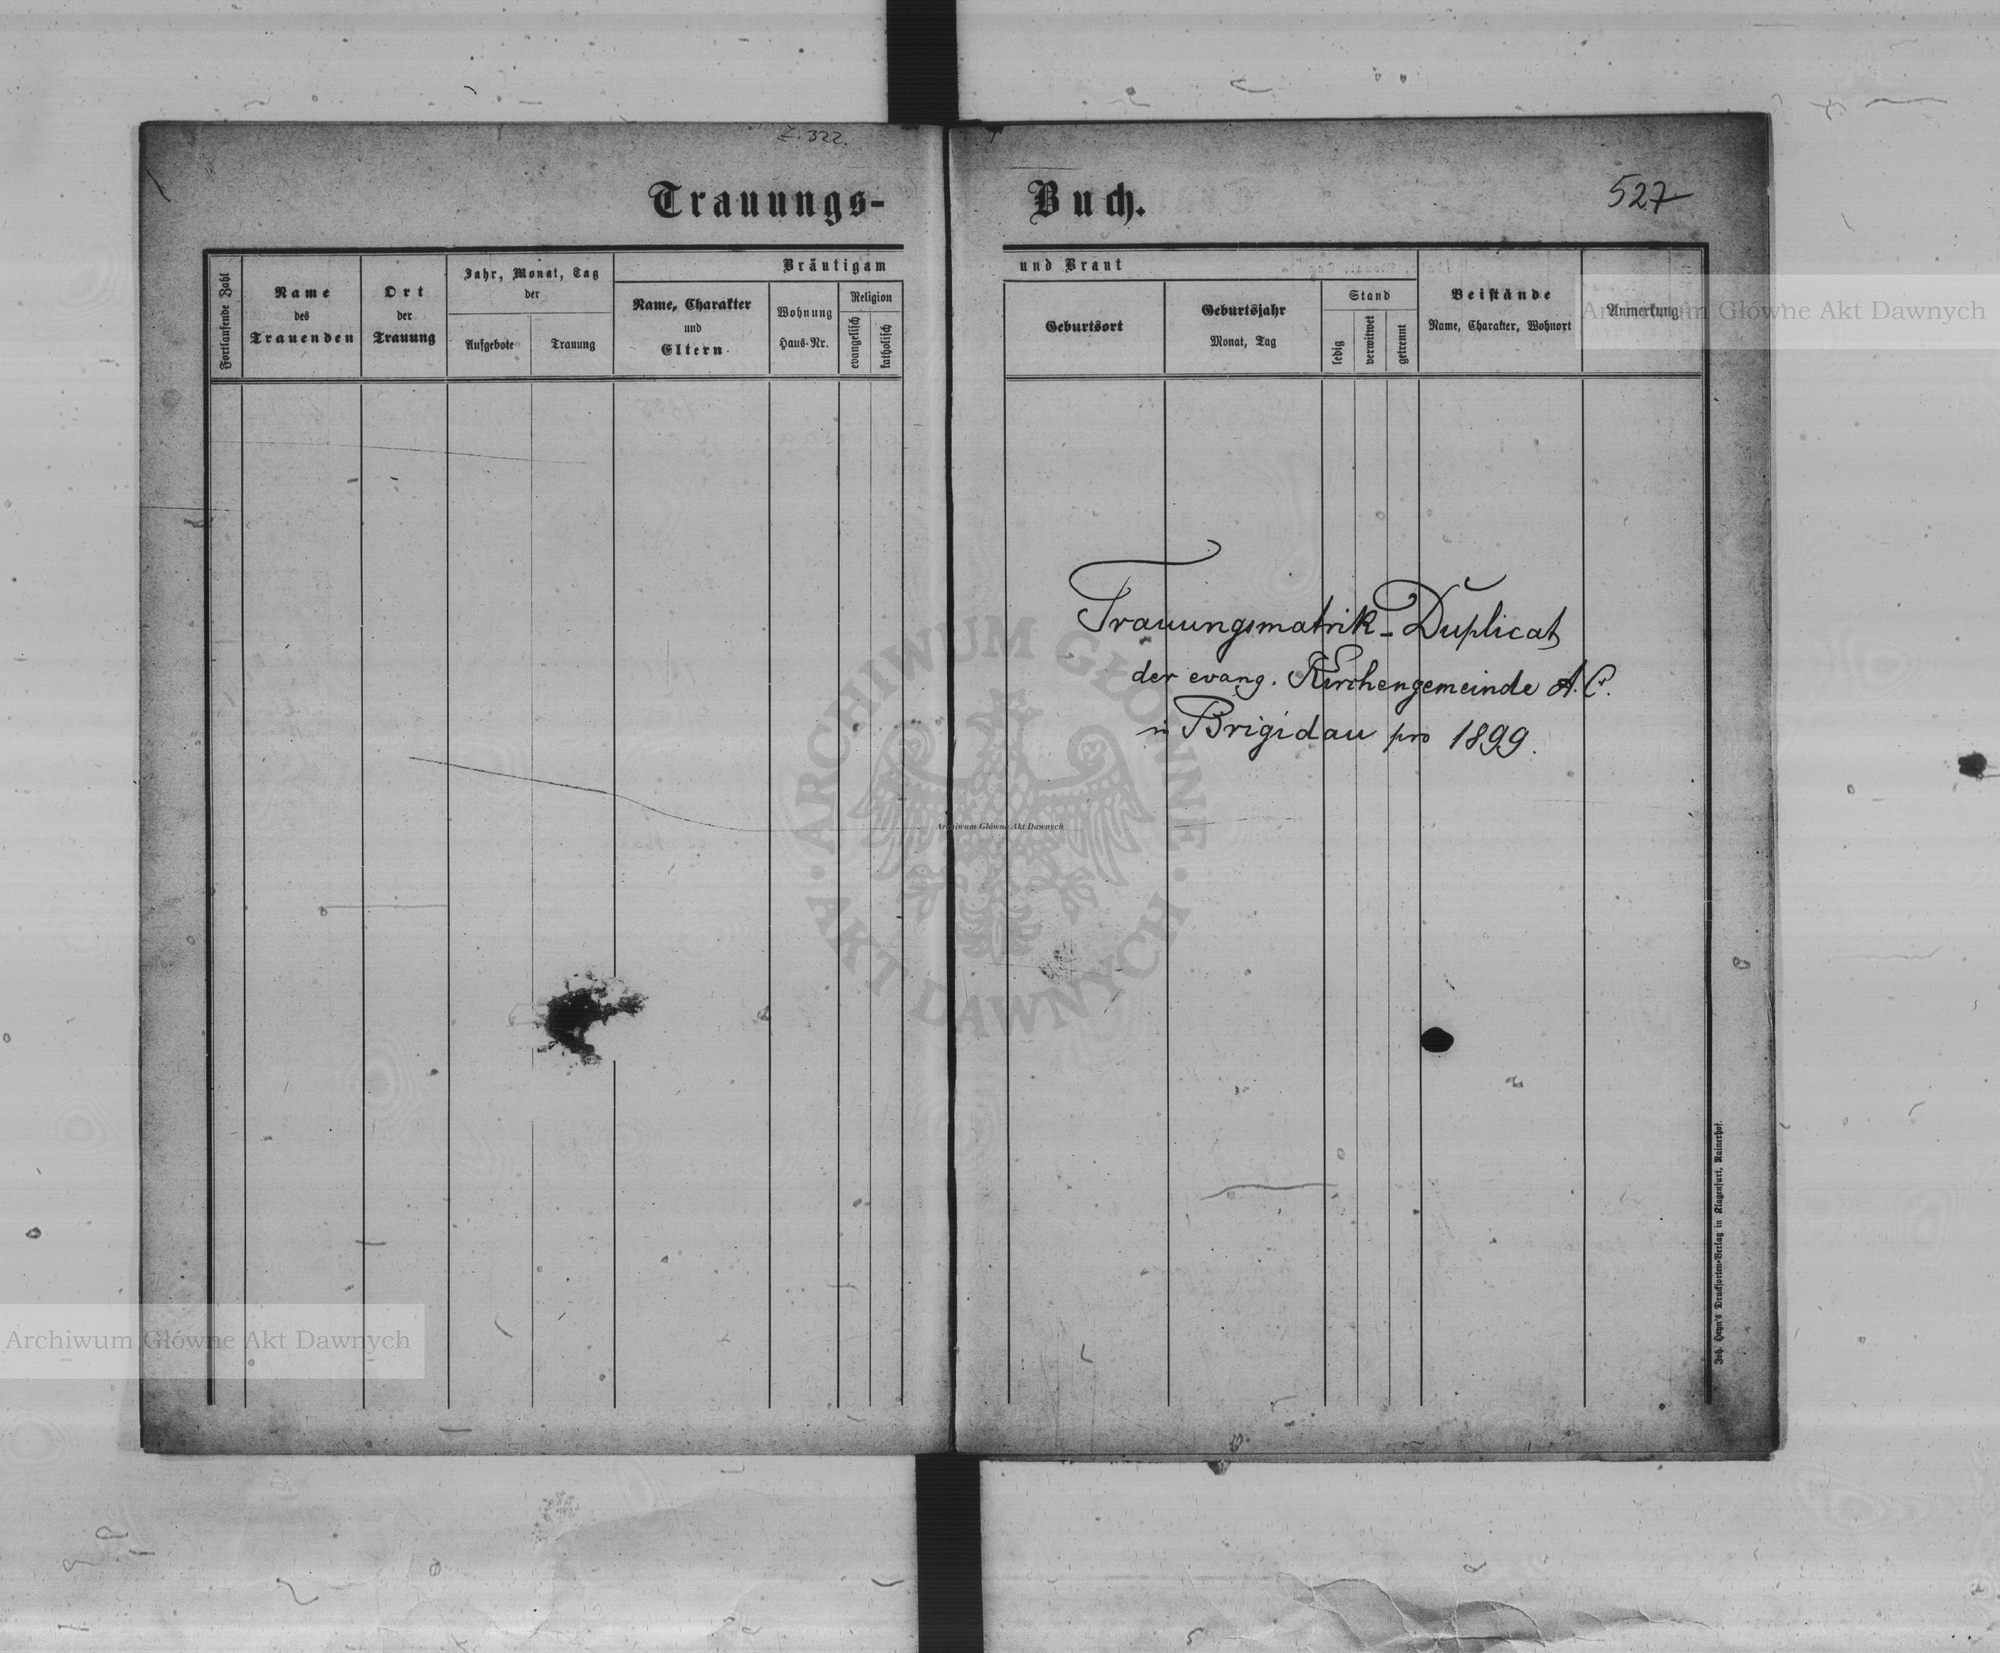 Z. 322.
Trauungs-
Buch.
527
Fortlaufende Zahl
Name
des
Trauenden
Ort
der
Trauung
Jahr, Monat, Tag
der
Aufgebote
Trauung
Bräutigam
Name, Charakter
und
Eltern
Wohnung
Haus-Nr.
Religion
evangelisch
katholisch
und Braut
Geburtsort
Geburtsjahr
Monat, Tag
Stand
ledig
verwitwet
getrennt
Beistände
Name, Charakter, Wohnort
Anmerkung
Archiwum Główne Akt Dawnych
Trauungsmatrik-Duplicat
der evang. Kirchengemeinde A. C.
in Brigidau pro 1899.
ARCHIWUM GŁÓWNE
AKT DAWNYCH
Archiwum Główne Akt Dawnych
Joh. Heyn's Drucksorten-Verlag in Klagenfurt, Rainerhof.
Archiwum Główne Akt Dawnych